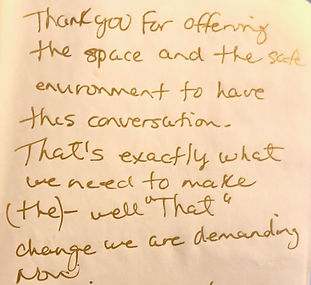 Thank you for offering
the space and the safe
environment to have
this conversation.
That's exactly what
we need to make
(the)- well "That"
change we are demanding
Now